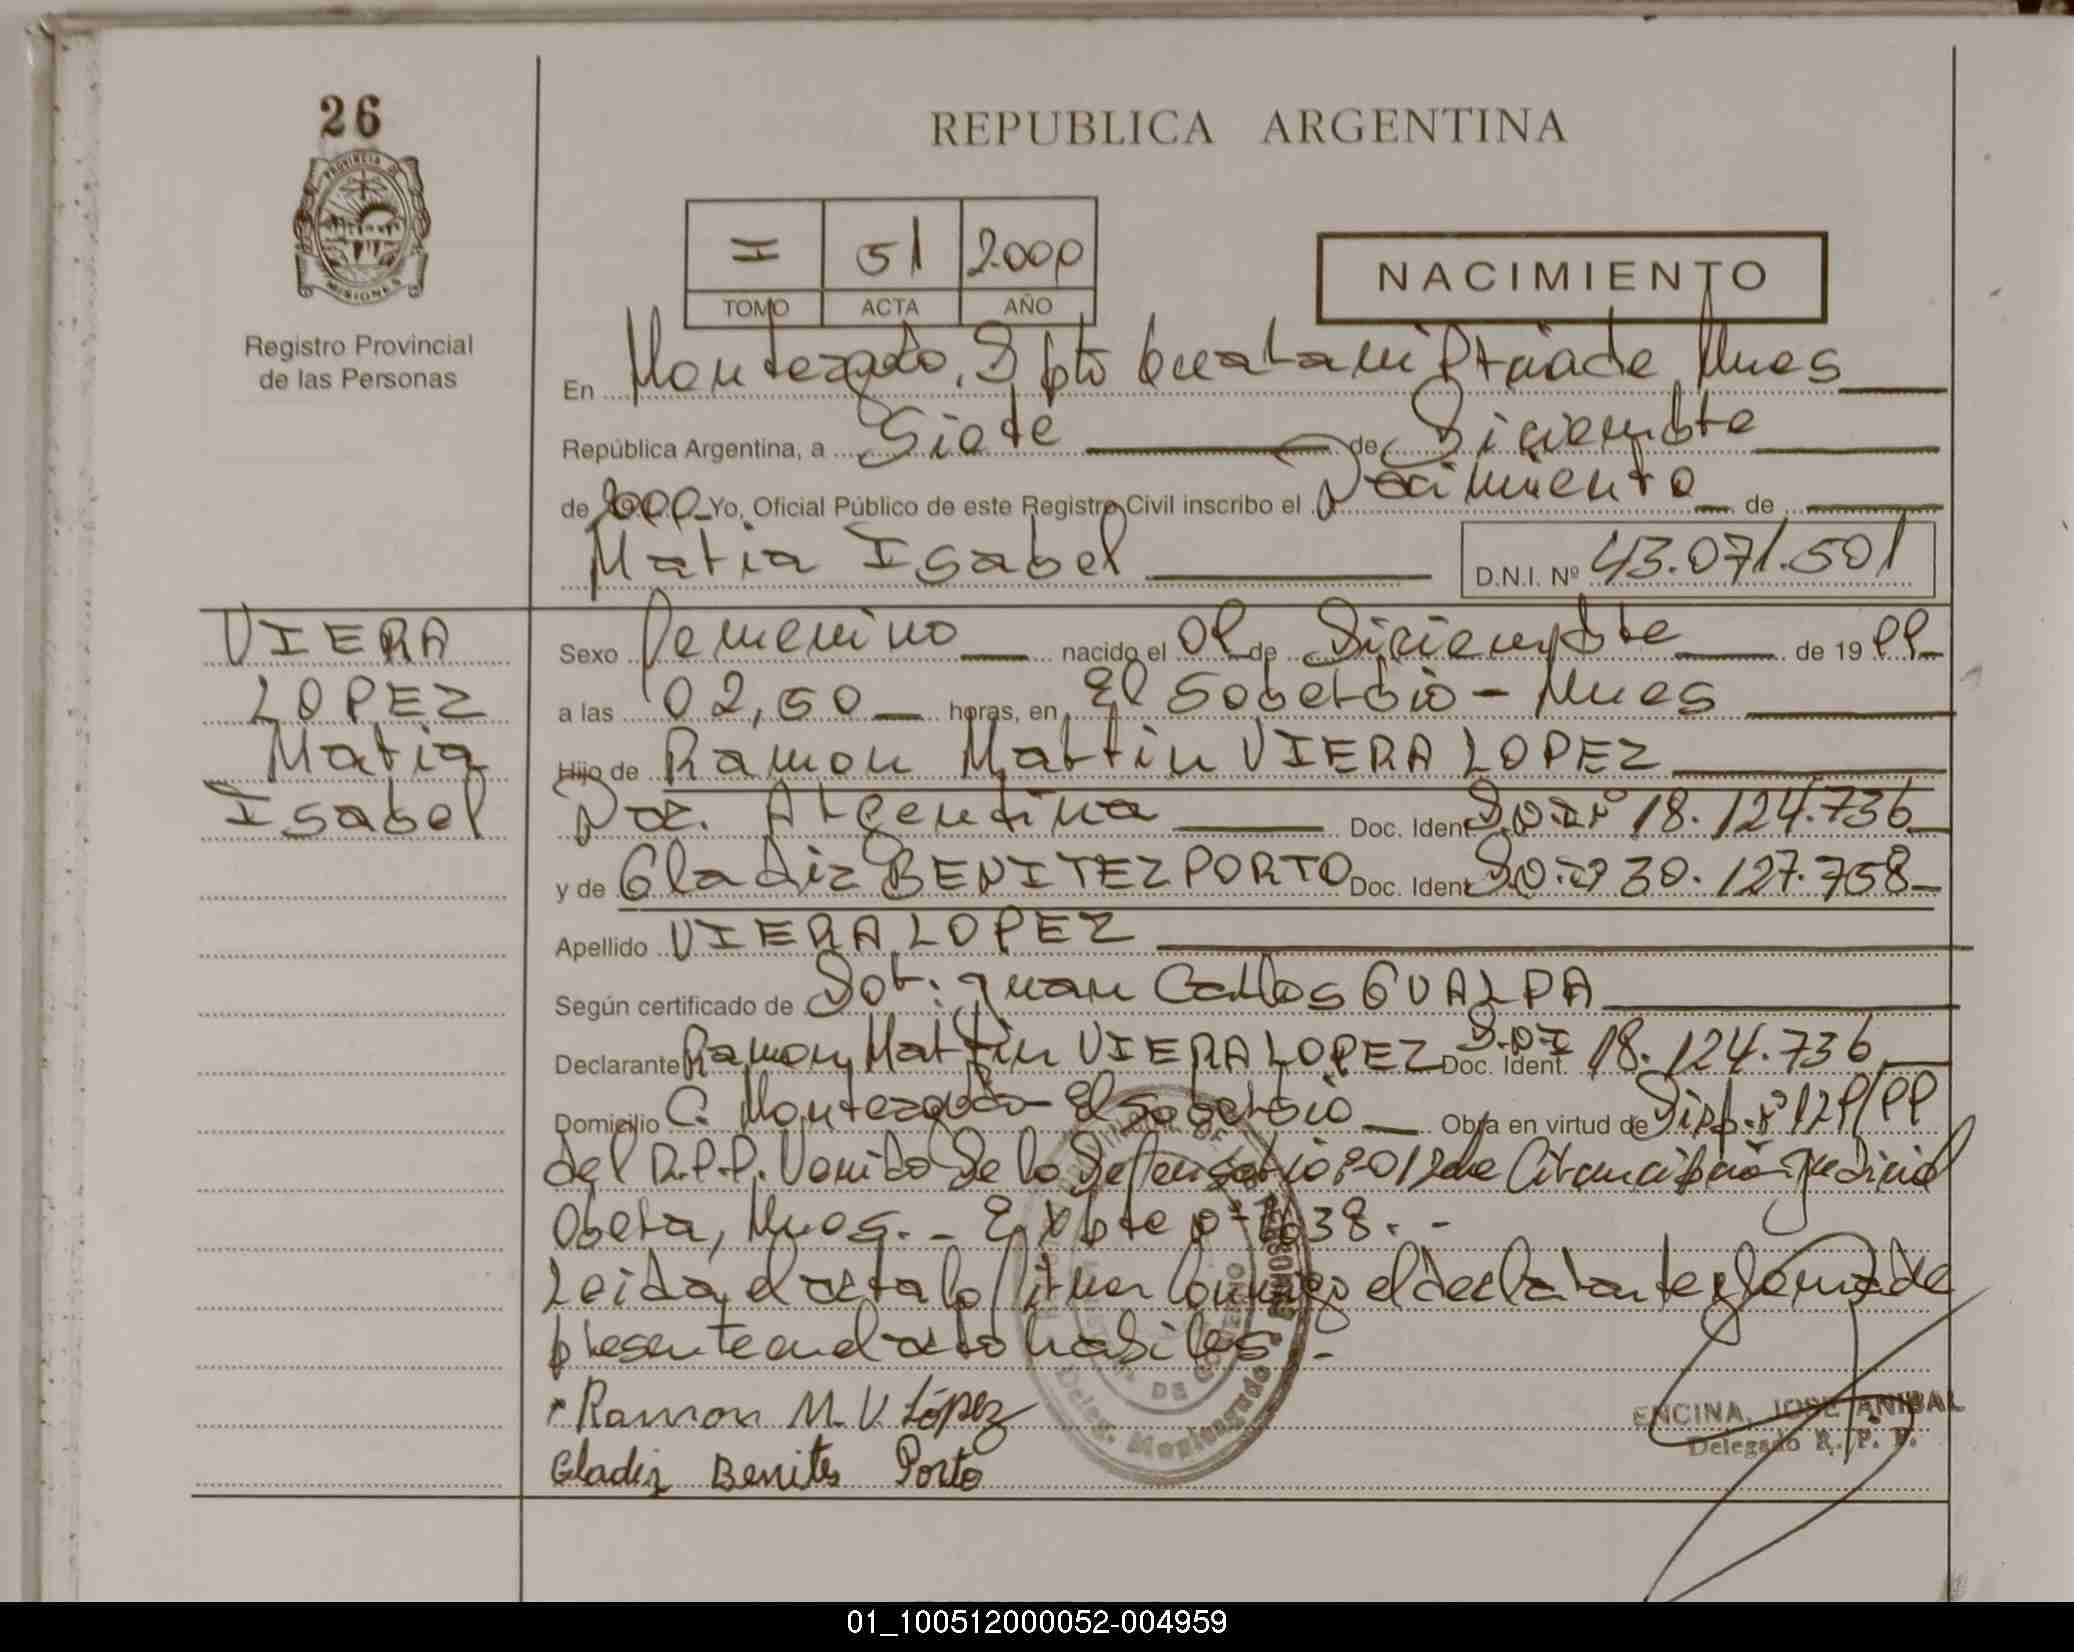 26
PROVINCIA DE
MISIONES
Registro Provincial
de las Personas
REPUBLICA ARGENTINA
I 51 2000
TOMO ACTA AÑO
NACIMIENTO
En Monteagudo, Dpto Guarani Pcia de Mnes
República Argentina, a Siete de Diciembre
de 2000 Yo, Oficial Público de este Registro Civil inscribo el Nacimiento de
Maria Isabel D.N.I. Nº 43.071.501
VIERA
LOPEZ
Maria
Isabel
Sexo Femenino nacido el 09 de Diciembre de 19 99
a las 02,50 horas, en El Soberbio - Mnes
Hijo de Ramon Martin VIERA LOPEZ
Nac. Argentina Doc. Ident D.N.I. Nº 18.124.736
y de Gladiz BENITEZ PORTO Doc. Ident D.N.I. Nº 30.127.758
Apellido VIERA LOPEZ
Según certificado de Dor. Juan Carlos GUALPA
Declarante Ramon Martin VIERA LOPEZ Doc. Ident. D.N.I 18.124.736
Domicilio C. Monteagudo - El Soberbio Obra en virtud de Disp. Nº 129/99
del R.P.P. Venido de la Defensoria Circuncipcion Judicial
Obera, Mnes. - Expte
Leida el acta la firman conmigo el declarante y la madre
presente en el acto habiles. -
Ramon M. V. López
Gladiz Benites Porto
DE GOBIERNO
Deleg. Monteagudo
ENCINA, JOSE ANIBAL
Delegado R. P. P.
01_100512000052-004959